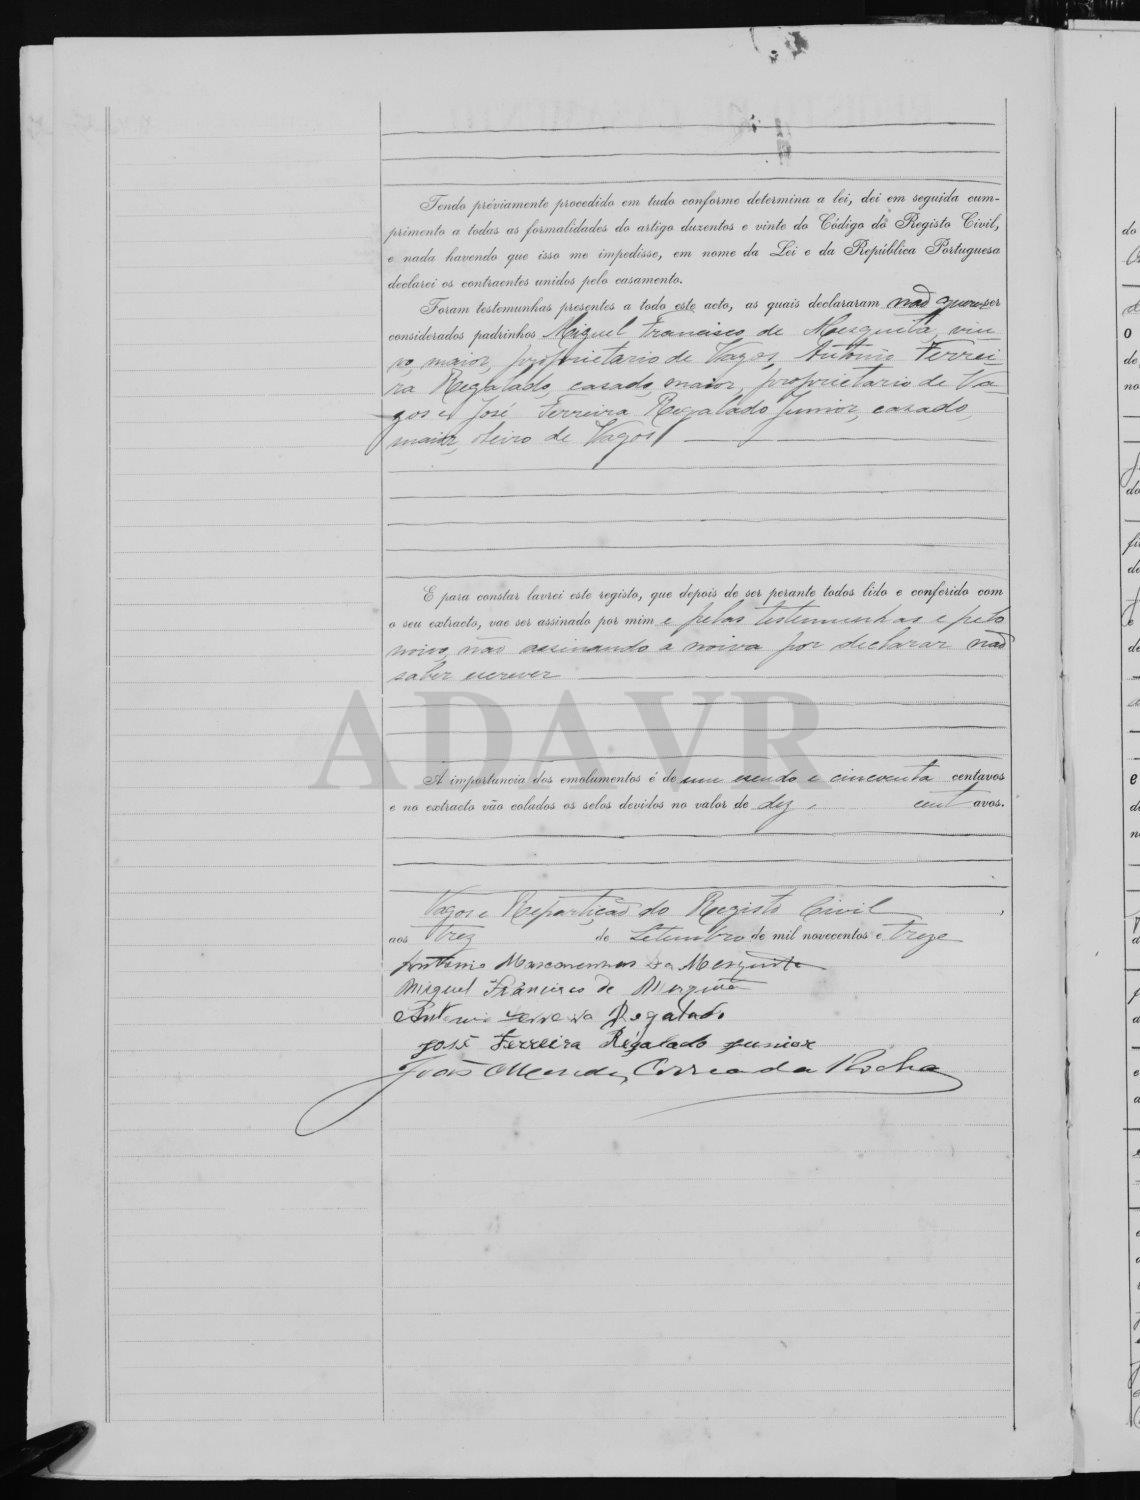 Tendo préviamente procedido em tudo conforme determina a lei, dei em seguida cum-
primento a todas as formalidades do artigo duzentos e vinte do Código do Registo Civil,
e nada havendo que isso me impedisse, em nome da Lei e da República Portuguesa
declarei os contraentes unidos pelo casamento.
Foram testemunhas presentes a todo este acto, as quais declararam não querer ser
considerados padrinhos Miguel Francisco de Mesquita, viu-
vo, maior, proprietario de Vagos, Antonio Ferrei-
ra Regalado, casado, maior, proprietario de Va-
gos e José Ferreira Regalado Junior, casado,
maior, oleiro de Vagos
E para constar lavrei este registo, que depois de ser perante todos lido e conferido com
o seu extracto, vae ser assinado por mim e pelas testemunhas e pelo
noivo, não assinando a noiva por declarar não
saber escrever
ADAVR
A importancia dos emolumentos é de um escudo e cincoenta centavos
e no extracto vão colados os selos devidos no valor de dez centavos.
Vagos e Repartição do Registo Civil,
aos trez de Setembro de mil novecentos e treze
Antonio Mascarenhas da Mesquita
Miguel Francisco de Mesquita
Antonio Ferreira Regalado
José Ferreira Régalado Junior
João Mendes Correa da Rocha